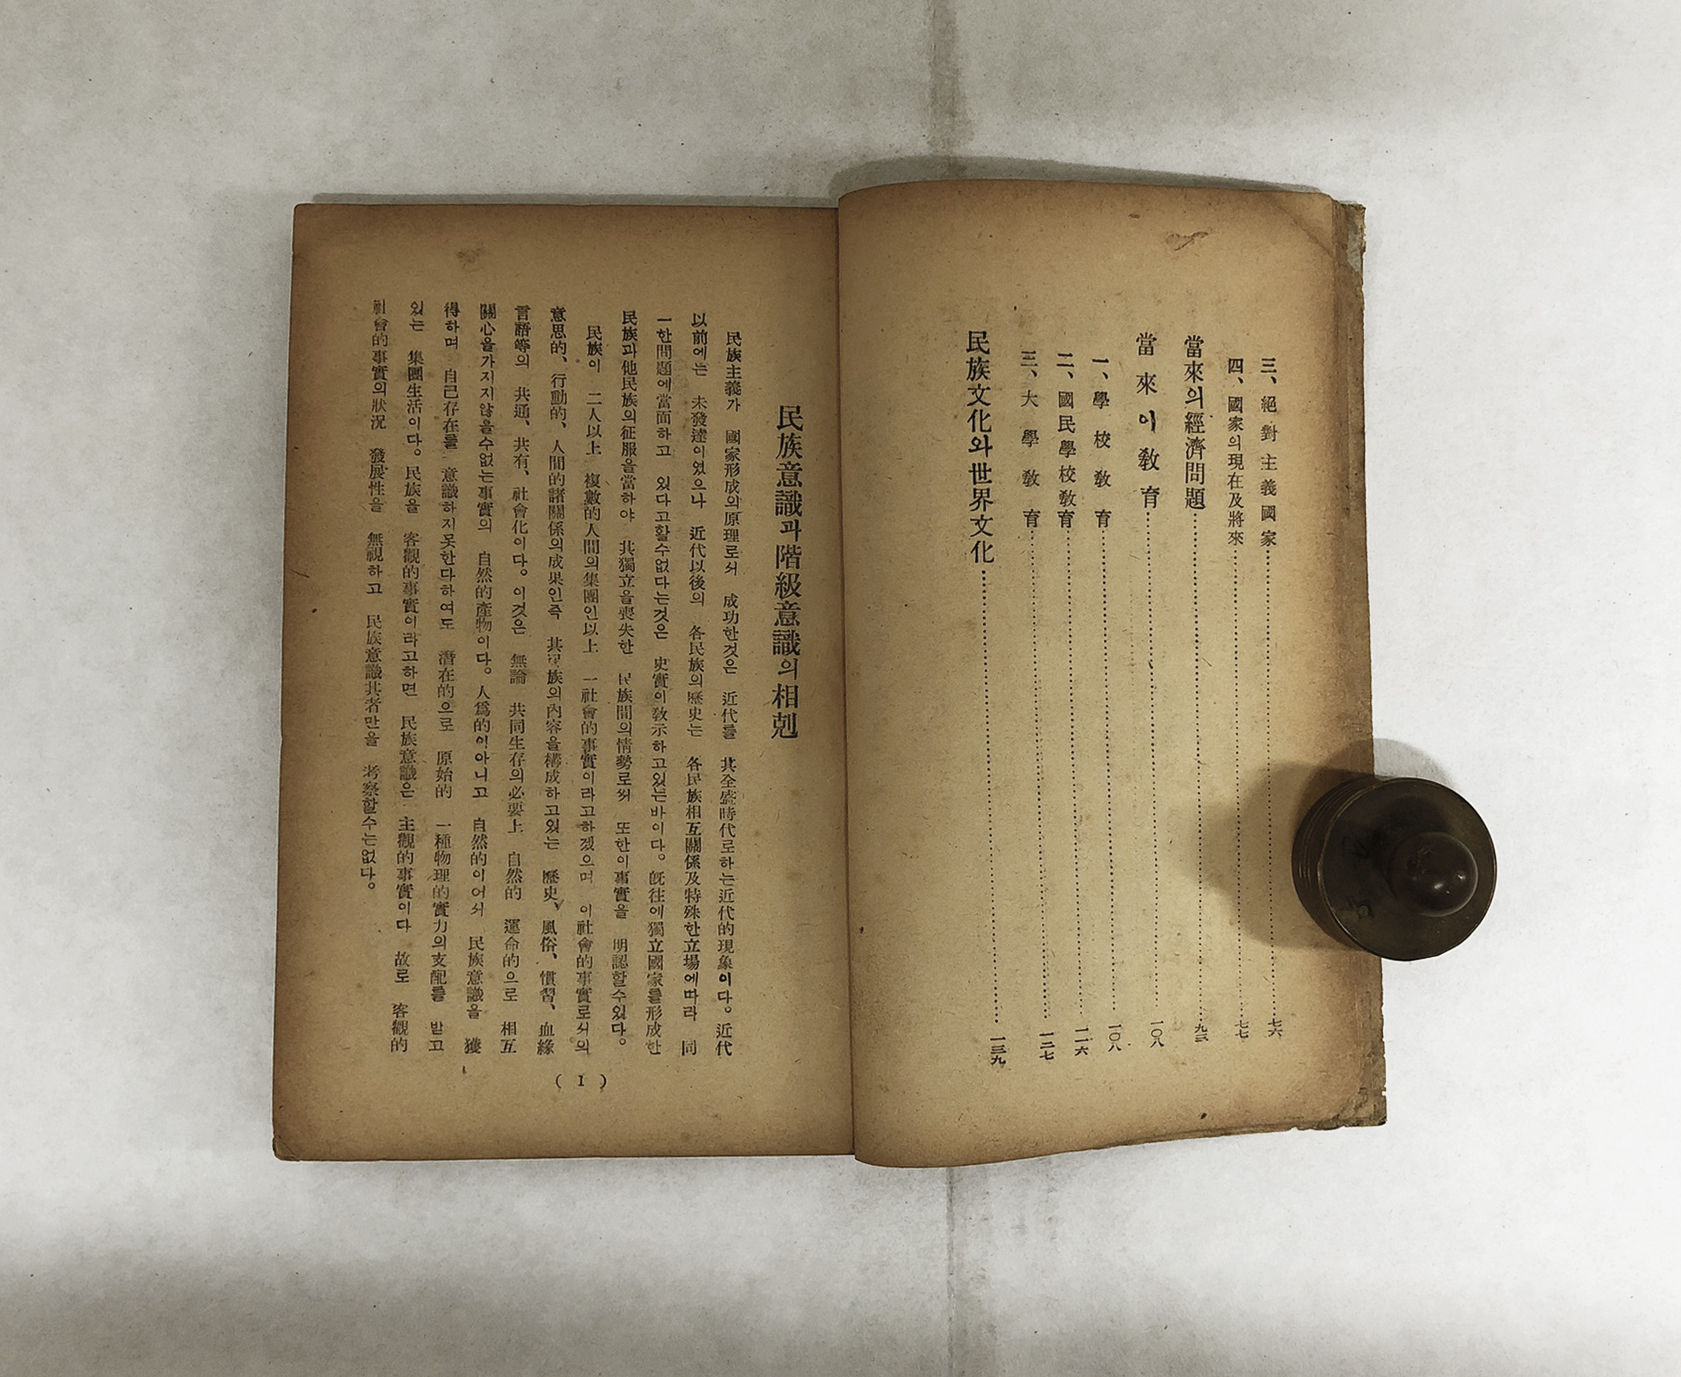 三、絕對主義國家……七六
四、國家의現在及將來……七七
當來의經濟問題……九三
當來이敎育……一〇八
一、學校敎育……一〇八
二、國民學校敎育……一一六
三、大學敎育……一二七
民族文化와世界文化……一三九
民族意識과階級意識의相剋
民族主義가 國家形成의原理로서 成功한것은 近代를 其全盛時代로하는近代的現象이다。近代
以前에는 未發達이였으나 近代以後의 各民族의歷史는 各民族相互關係及特殊한立場에따라 同
一한問題에當面하고 있다고할수없다는것은 史實이敎示하고있는바이다。旣往에獨立國家를形成한
民族과他民族의征服을當하야 其獨立을喪失한 民族間의情勢로써 또한이事實을 明認할수있다。
民族이 二人以上 複數的人間의集團인以上 一社會的事實이라고하겠으며 이社會的事實로서의
意思的、行動的、人間的諸關係의成果인즉 其民族의內容을構成하고있는 歷史、風俗、慣習、血緣
言語等의 共通、共有、社會化이다。이것은 無論 共同生存의必要上 自然的 運命的으로 相互
關心을가지지않을수없는事實의 自然的產物이다。人爲的이아니고 自然的이어서 民族意識을 獲
得하며 自己存在를 意識하지못한다하여도 潛在的으로 原始的 一種物理的實力의支配를 받고
있는 集團生活이다。民族을 客觀的事實이라고하면 民族意識은 主觀的事實이다 故로 客觀的
社會的事實의狀況 發展性을 無視하고 民族意識其者만을 考察할수는없다。
( 1 )